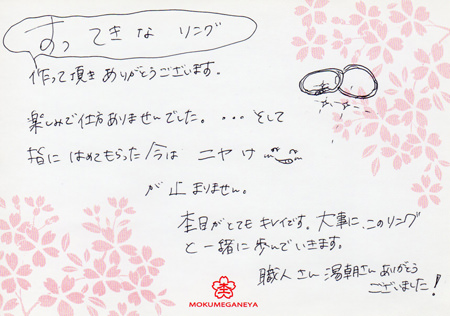 すってきな リング
作って頂きありがとうございます。
楽しみで仕方ありませんでした。・・・そして
指にはめてもらった今は ニヤけ
が止まりません。
杢目がとてもキレイです。大事に、このリング
と一緒に歩んでいきます。
職人さん 湯朝さんありがとう
ございました！
MOKUMEGANEYA